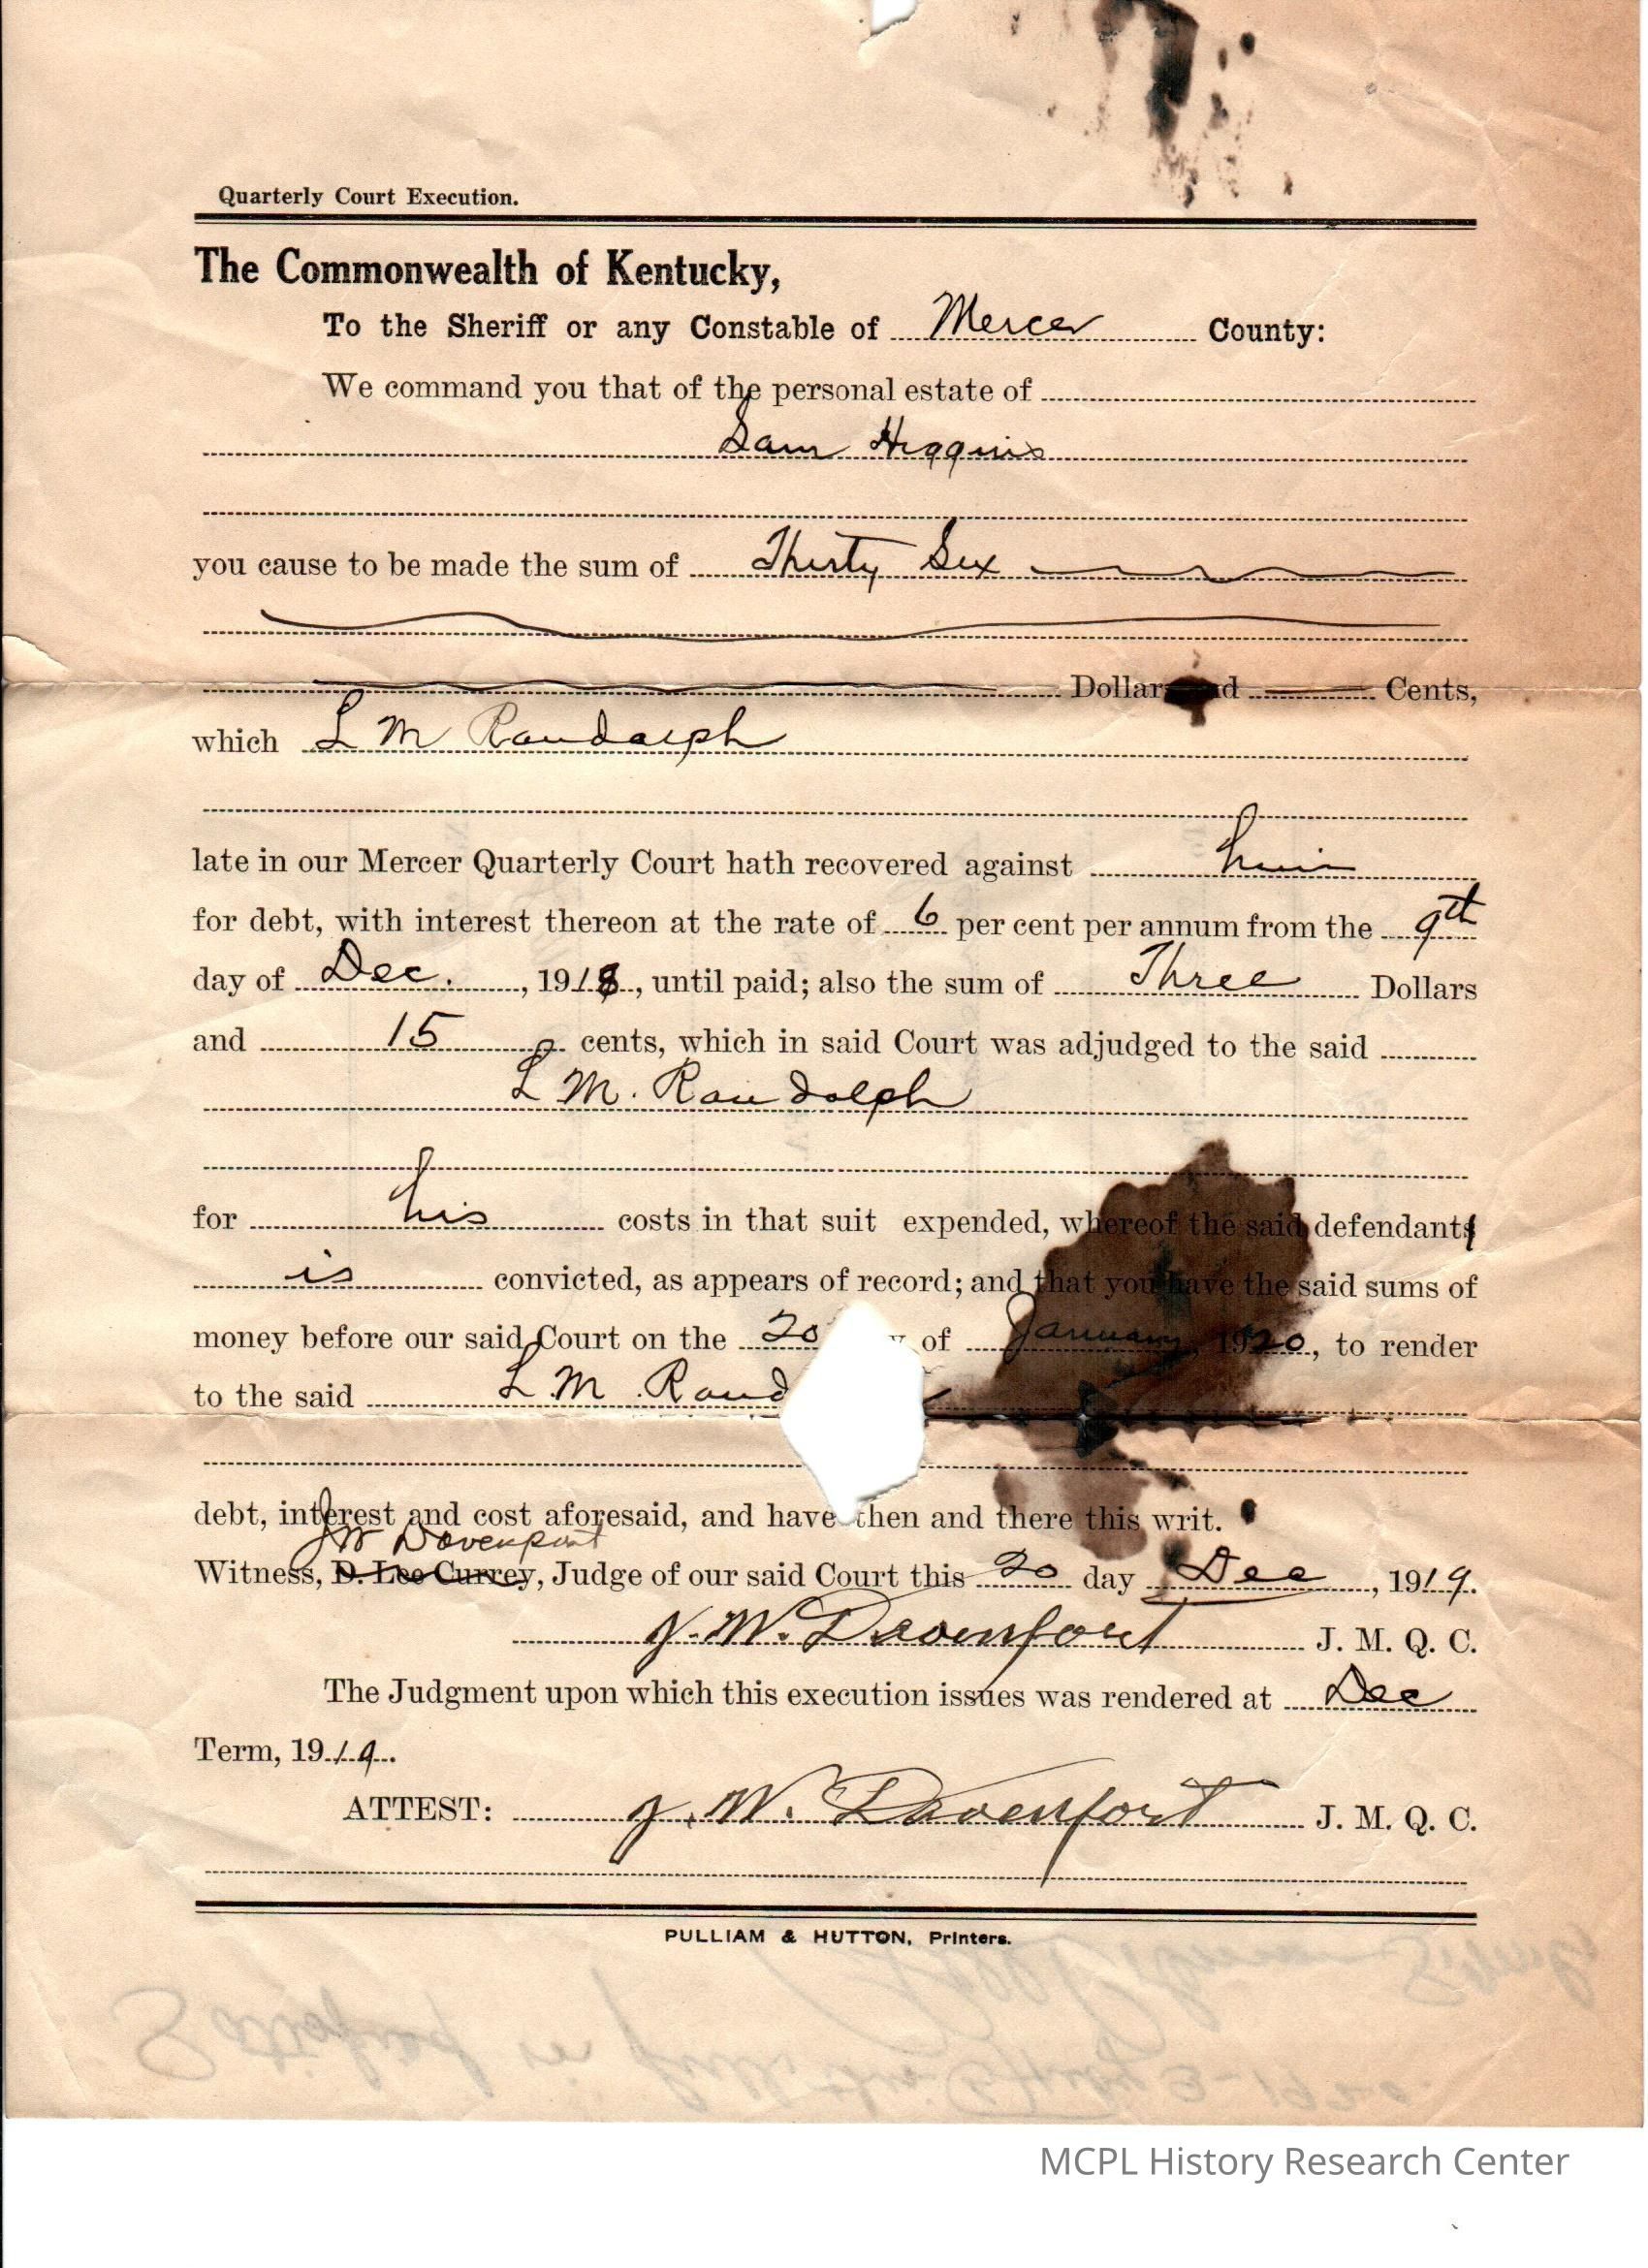 Quarterly Court Execution.
The Commonwealth of Kentucky,
To the Sheriff or any Constable of Mercer County:
We command you that of the personal estate of
Sam Higgins
you cause to be made the sum of Thirty Six
Dollars and Cents,
which L M Randolph
late in our Mercer Quarterly Court hath recovered against him
for debt, with interest thereon at the rate of 6 per cent per annum from the 9th
day of Dec. , 1918, until paid; also the sum of Three Dollars
and 15 cents, which in said Court was adjudged to the said
L M. Randolph
for his costs in that suit expended, whereof the said defendant
is convicted, as appears of record; and that you have the said sums of
money before our said Court on the 20 of January, 1920, to render
to the said L.M. Rand
debt, interest and cost aforesaid, and have then and there this writ.
JW Davenport
Witness, D. Lee Currey, Judge of our said Court this 20 day Dec , 1919.
J. W. Davenport J. M. Q. C.
The Judgment upon which this execution issues was rendered at Dec
Term, 1919.
ATTEST: J. W. Davenport J. M. Q. C.
PULLIAM & HUTTON, Printers.
MCPL History Research Center